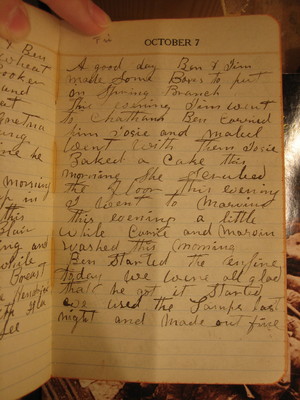 Fri
OCTOBER 7
A good day Ben & Jim
made some Boxes to put
on Spring Branch
This evening Jim went
to Chattann Ben carried
him Josie and mabel
went with them Josie
Baked a cake this
morning She
the floor this evening
I went to
this evening a little
while and
washed this morning
Ben started the engine
today we were all glad
that he got it started
we used the Lamps last
night and made out fine
Ben
wheat
and
morning
up in
this
ing and
while
Lee